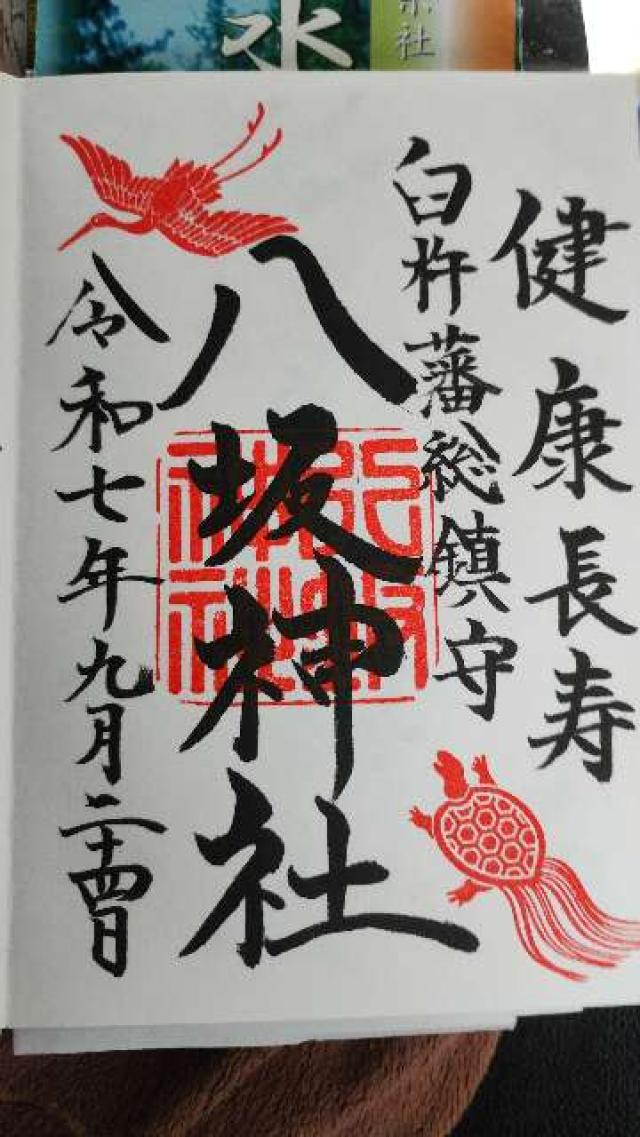 健康長寿
臼杵藩総鎮守
八坂神社
令和七年九月二十四日
八坂
神社
水
社